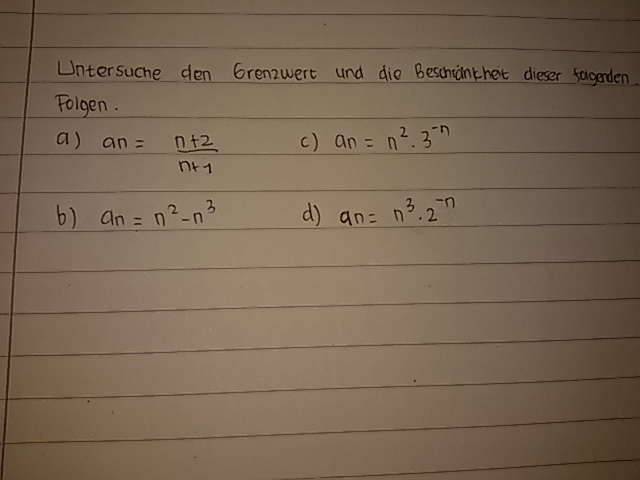 Untersuche den Grenzwert und die Beschränkheit dieser folgenden
Folgen.
a) an = n+2/n+1 c) an = n².3⁻ⁿ
b) an = n²-n³ d) an = n³.2⁻ⁿ